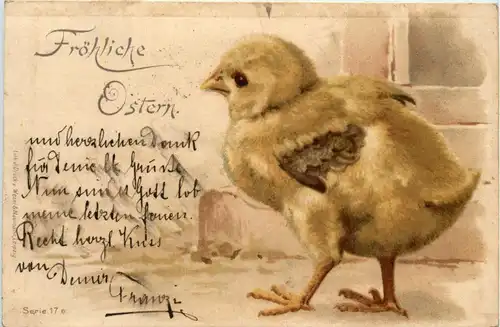 Fröhliche
Ostern.
und herzlichen Dank
für Deine lb. Grüsse
Nun sind Gott lob
meine letzten ferien.
Recht herzl. Kuss
von Deiner
Franzi
Serie 17 e